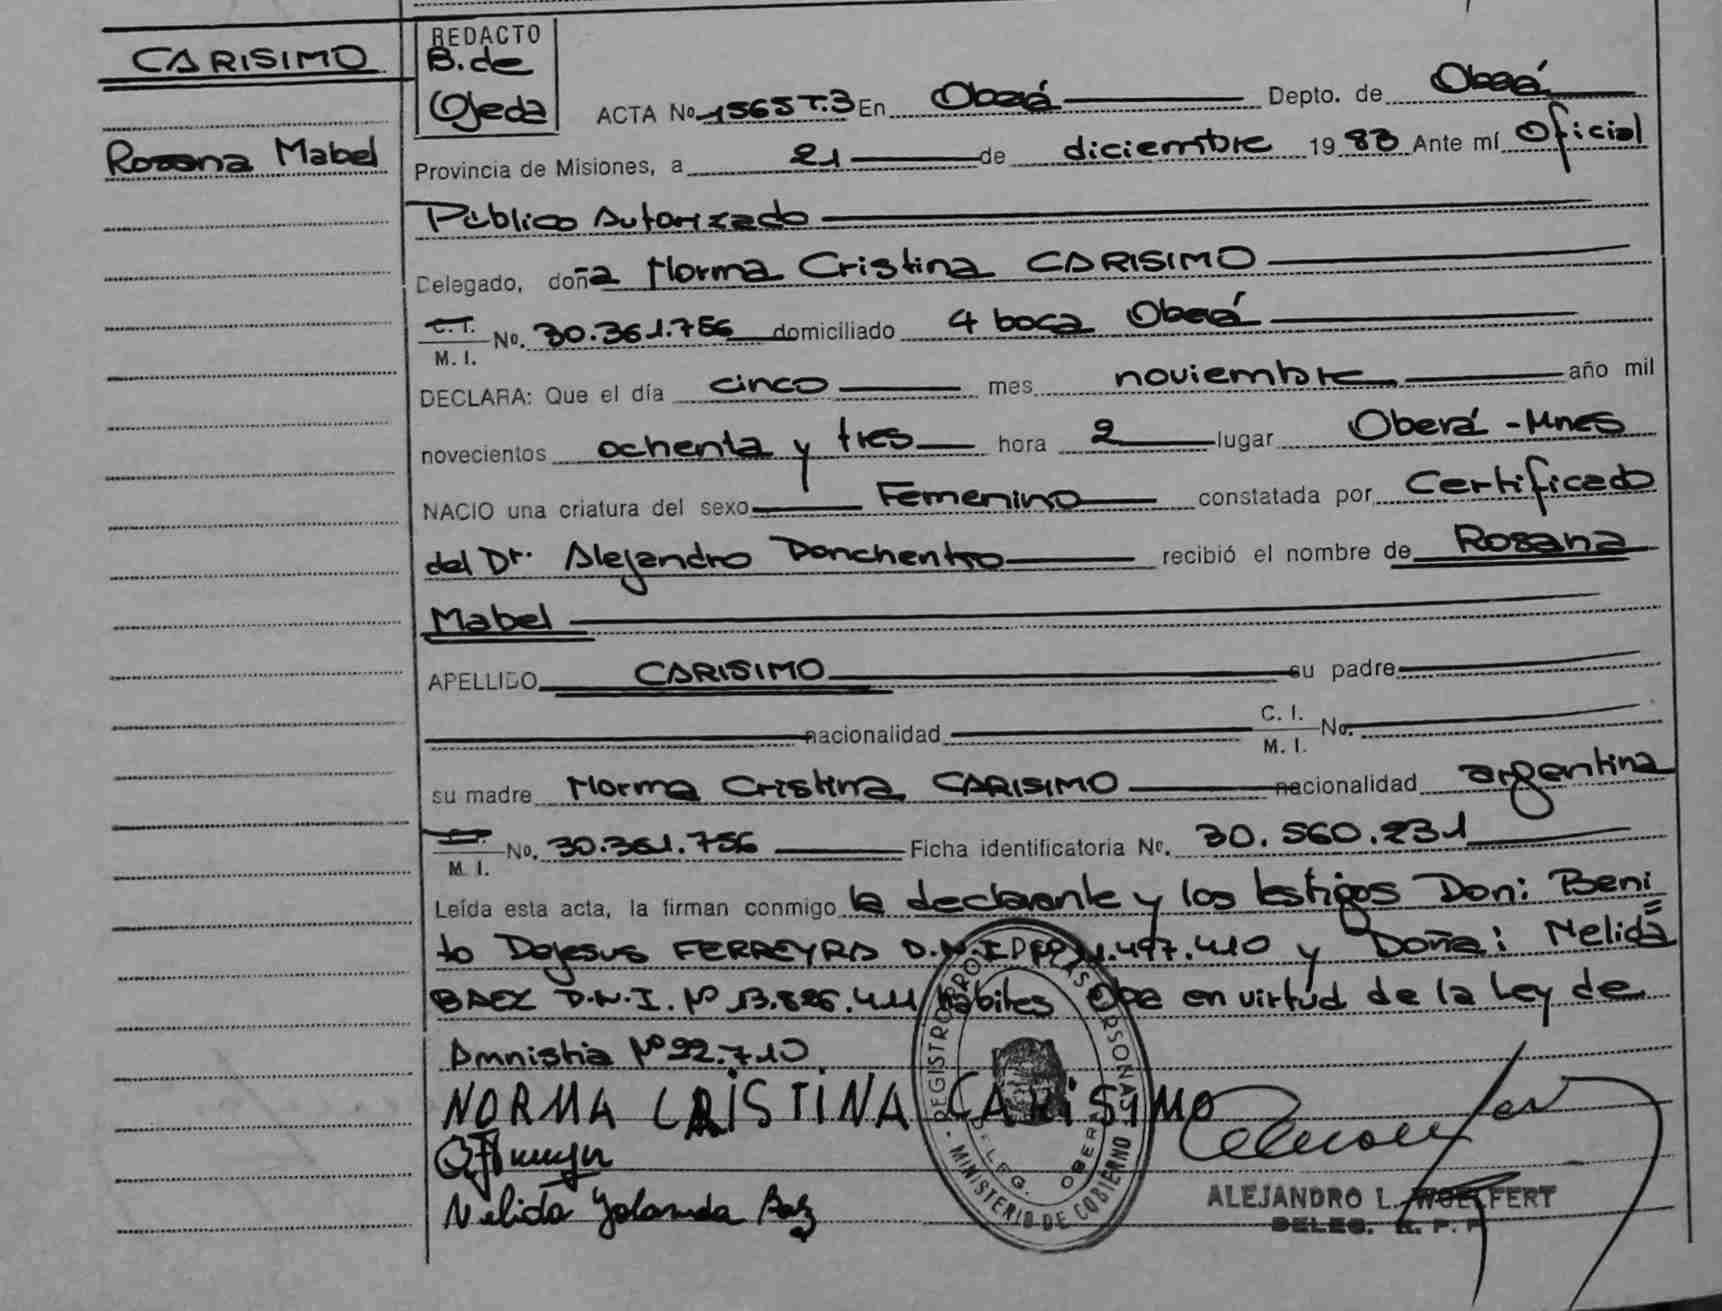 CARISIMO
Rosana Mabel
REDACTO
B. de
Ojeda
ACTA No 1565 T.3 En Oberá Depto. de Oberá
Provincia de Misiones, a 21 de diciembre 19 83 Ante mí Oficial
Público Autorizado
Delegado, doña Norma Cristina CARISIMO
C. I.
M. I. No. 30.361.756 domiciliado 4 boca Oberá
DECLARA: Que el día cinco mes noviembre año mil
novecientos ochenta y tres hora 2 lugar Oberá - Mnes
NACIO una criatura del sexo Femenino constatada por Certificado
del Dr. Alejandro recibió el nombre de Rosana
Mabel
APELLIDO CARISIMO su padre
nacionalidad C. I. M. I. No.
su madre Norma Cristina CARISIMO nacionalidad argentina
M. I. No. 30.361.756 Ficha identificatoria No. 30.560.231
Leída esta acta, la firman conmigo la declarante y los testigos Don: Beni
to Dejesus FERREYRA D.N.I. .497.410 y Doña: Nelida
BAEZ D.N.I. Nº 13.826.411 hábiles en virtud de la Ley de
Amnistia Nº 22.710
NORMA CRISTINA CARISIMO
Nelida Yolanda Baez
REGISTRO PROV. PERSONAS
DELEG. OBERA
MINISTERIO DE GOBIERNO
ALEJANDRO L. WOELFERT
DELEG. R. P. P.